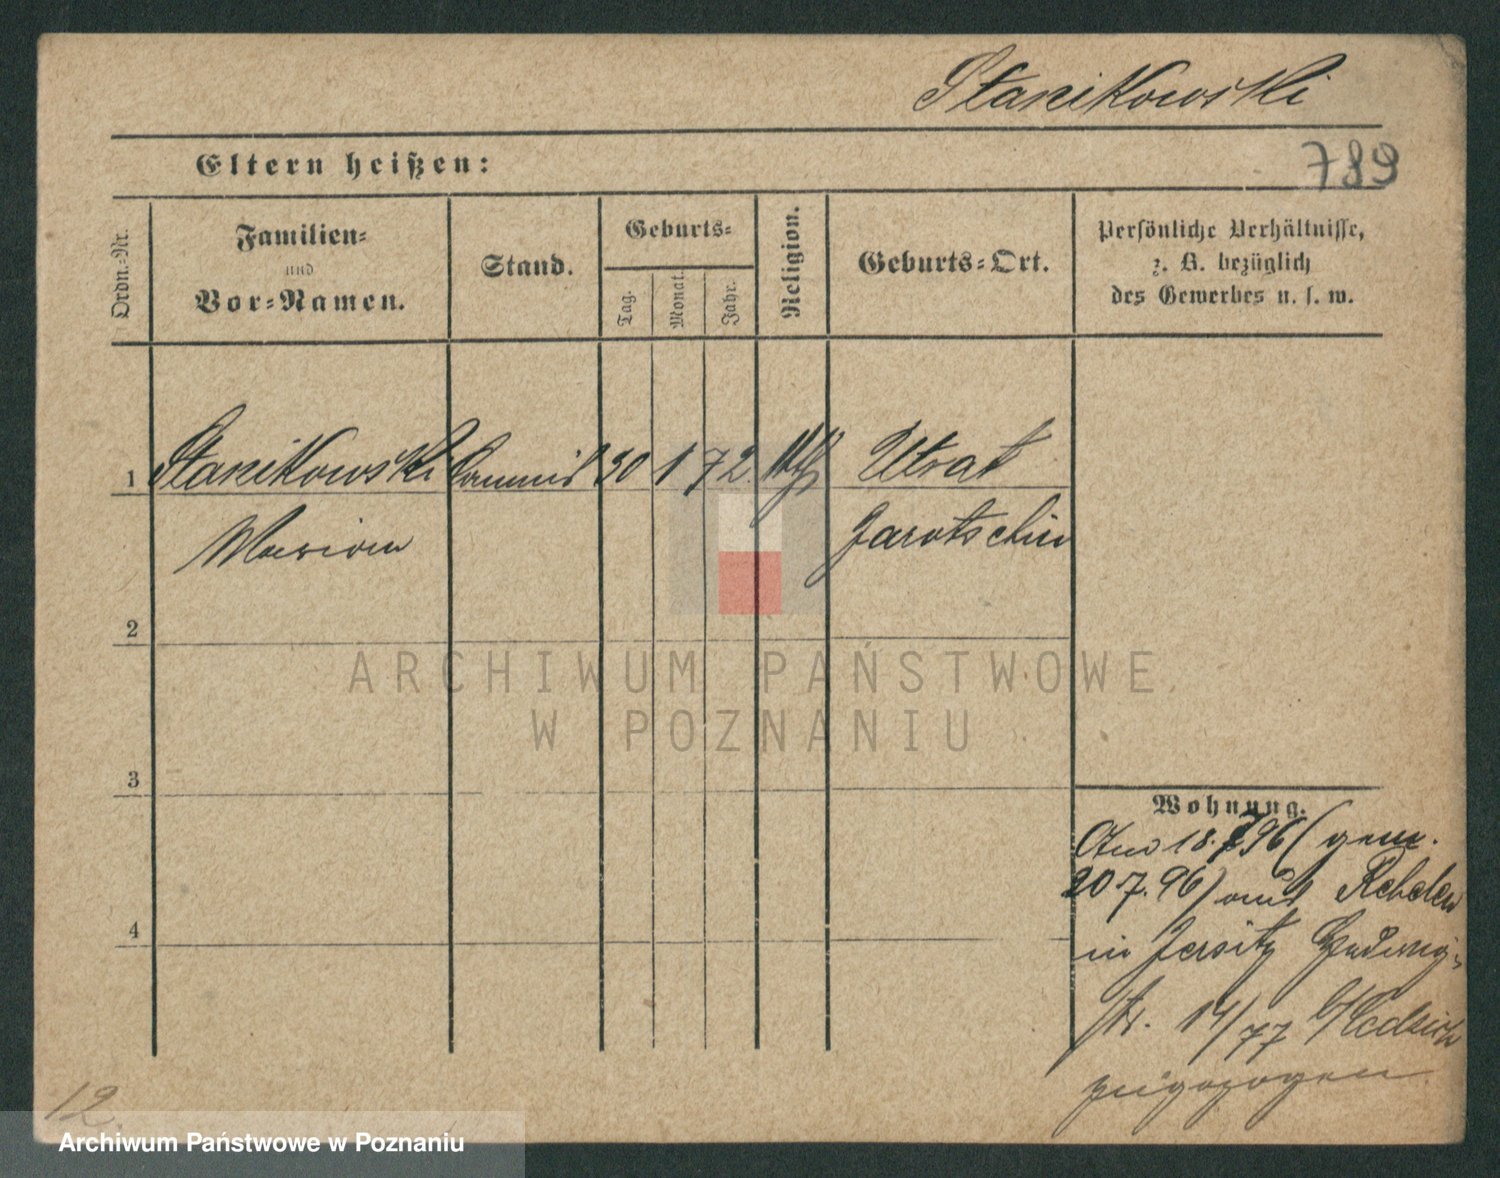 Stanikowski
789
Eltern heißen:
Ordn.-Nr.
Familien-
und
Vor-Namen.
Stand.
Geburts-
Tag.
Monat.
Jahr.
Religion.
Geburts-Ort.
Persönliche Verhältnisse,
z. B. bezüglich
des Gewerbes u. s. w.
1 Stanikowski Commis 30 1 72. kth Utrat
Marian Jarotschin
2
3
4
Wohnung.
Am 18.7 96 (gem.
20 7. 96) aus Rebelew
in Jersitz Hedwig-
str. 14/77 b/
zugezogen
12.
ARCHIWUM PAŃSTWOWE
W POZNANIU
Archiwum Państwowe w Poznaniu